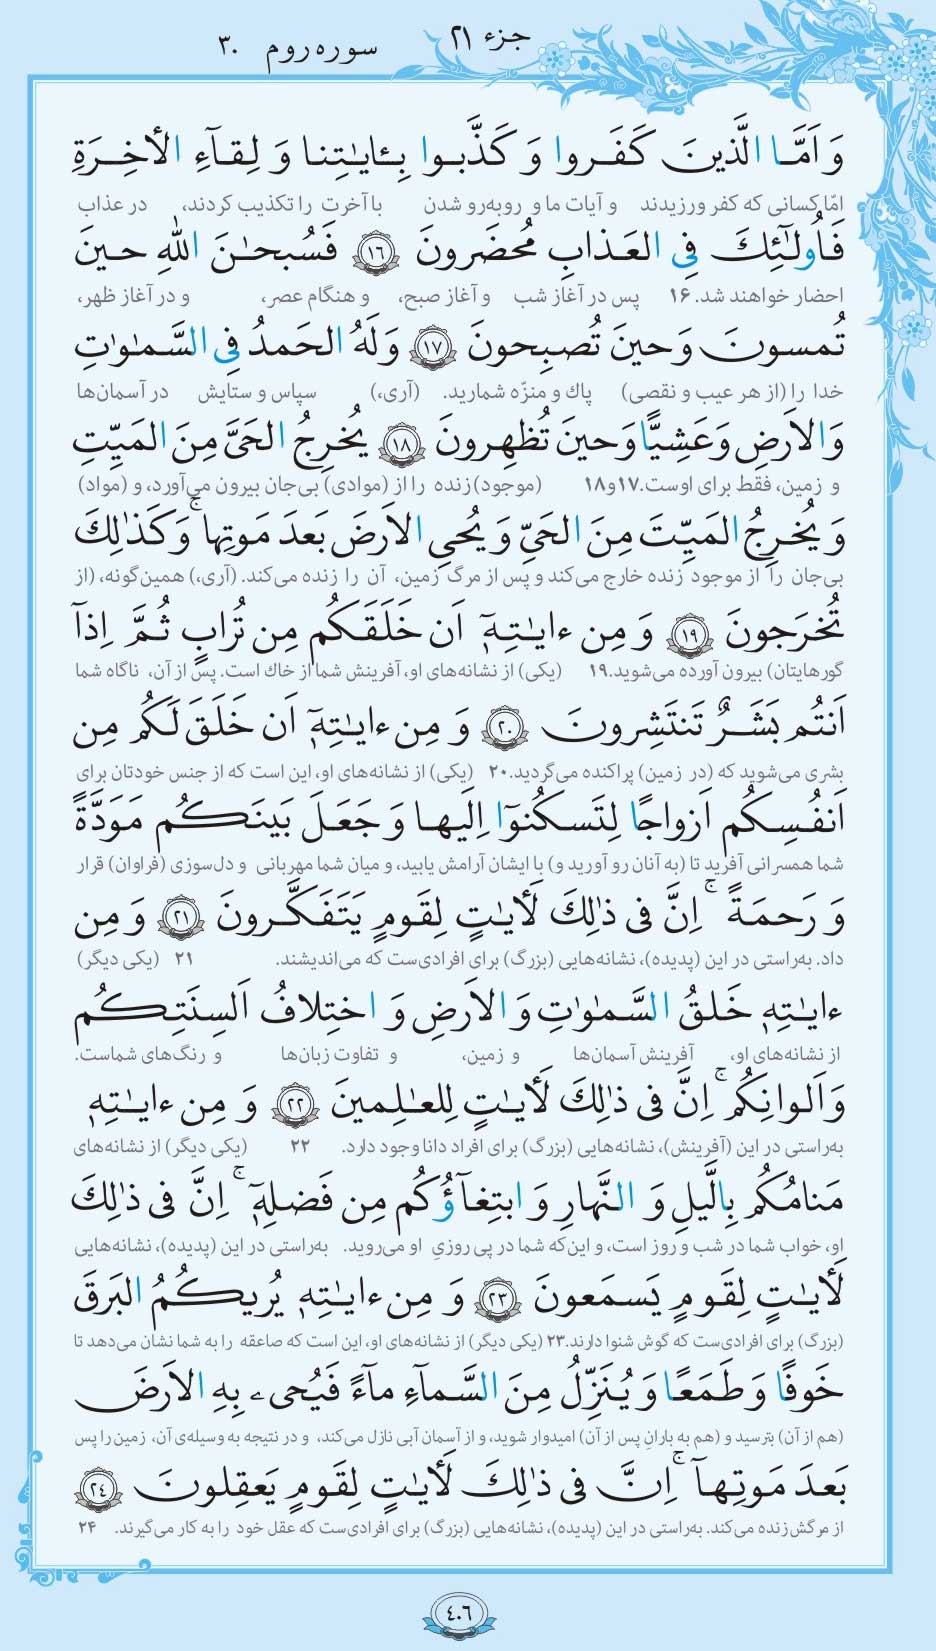 جزء ۲۱
سوره روم ۳۰
وَ اَمَّا الَّذینَ کَفَروا وَ کَذَّبوا بِـٔایـٰتِنا وَ لِقـآءِ الأخِـرَةِ
امّا کسانی که کفر ورزیدند و آیات ما و روبه‌رو شدن با آخرت را تکذیب کردند، در عذاب
فَاُولـٰئِكَ فِی العَـذابِ مُحضَرونَ ﴿۱۶﴾ فَسُبحـٰنَ اللهِ حـینَ
احضار خواهند شد. ۱۶ پس در آغاز شب و آغاز صبح، و هنگام عصر، و در آغاز ظهر،
تُمسونَ وَ حینَ تُصبِحونَ ﴿۱۷﴾ وَ لَهُ الحَمدُ فِی السَّمـٰوٰتِ
خدا را (از هر عیب و نقصی) پاك و منزّه شمارید. (آری،) سپاس و ستایش در آسمان‌ها
وَ الاَرضِ وَ عَشِیًّا وَ حینَ تُظهِرونَ ﴿۱۸﴾ یُخرِجُ الحَیَّ مِنَ المَیِّتِ
و زمین، فقط برای اوست.۱۷و۱۸ (موجود)زنده را از (موادی) بی‌جان بیرون می‌آورد، و (مواد)
وَ یُخـرِجُ المَیِّتَ مِنَ الحَیِّ وَ یُحیِ الاَرضَ بَعدَ مَوتِها ۚ وَ کَذٰلِكَ
بی‌جان را از موجود زنده خارج می‌کند و پس از مرگ زمین، آن را زنده می‌کند. (آری،) همین‌گونه، (از
تُخرَجونَ ﴿۱۹﴾ وَ مِن ءایـٰتِـهٖٓ اَن خَلَقَکُم مِن تُرابٍ ثُمَّ اِذآ
گورهایتان) بیرون آورده می‌شوید.۱۹ (یکی) از نشانه‌های او، آفرینش شما از خاك است. پس از آن، ناگاه شما
اَنتُم بَشَـرٌ تَنتَشِرونَ ﴿۲۰﴾ وَ مِن ءایـٰتِهٖٓ اَن خَلَقَ لَکُم مِن
بشری می‌شوید که (در زمین) پراکنده می‌گردید.۲۰ (یکی) از نشانه‌های او، این است که از جنس خودتان برای
اَنفُسِکُم اَزواجًا لِتَسکُنوٓا اِلَیها وَ جَعَلَ بَینَکُم مَوَدَّةً
شما همسرانی آفرید تا (به آنان رو آورید و) با ایشان آرامش یابید، و میان شما مهربانی و دل‌سوزی (فراوان) قرار
وَ رَحمَةً ۚ اِنَّ فی ذٰلِكَ لَأیـٰتٍ لِقَومٍ یَتَفَکَّرونَ ﴿۲۱﴾ وَ مِن
داد. به‌راستی در این (پدیده)، نشانه‌هایی (بزرگ) برای افرادی‌ست که می‌اندیشند. ۲۱ (یکی دیگر)
ءایـٰتِهٖ خَلقُ السَّمـٰوٰتِ وَ الاَرضِ وَ اختِلافُ اَلسِنَتِکُم
از نشانه‌های او، آفرینش آسمان‌ها و زمین، و تفاوت زبان‌ها و رنگ‌های شماست.
وَ اَلوانِکُم ۚ اِنَّ فی ذٰلِكَ لَأیـٰتٍ لِلعـٰلِمینَ ﴿۲۲﴾ وَ مِن ءایـٰتِهٖ
به‌راستی در این (آفرینش)، نشانه‌هایی (بزرگ) برای افراد دانا وجود دارد. ۲۲ (یکی دیگر) از نشانه‌های
مَنامُکُم بِالَّیلِ وَ النَّهارِ وَ ابتِغآؤُکُم مِن فَضلِهٖٓ ۚ اِنَّ فی ذٰلِكَ
او، خواب شما در شب و روز است، و این‌که شما در پی روزیِ او می‌روید. به‌راستی در این (پدیده)، نشانه‌هایی
لَأیـٰتٍ لِقَومٍ یَسمَعونَ ﴿۲۳﴾ وَ مِن ءایـٰتِهٖ یُریکُمُ البَرقَ
(بزرگ) برای افرادی‌ست که گوش شنوا دارند.۲۳ (یکی دیگر) از نشانه‌های او، این است که صاعقه را به شما نشان می‌دهد تا
خَوفًا وَ طَمَعًا وَ یُنَزِّلُ مِنَ السَّمآءِ مآءً فَیُحیۦ بِهِ الاَرضَ
(هم از آن) بترسید و (هم به بارانِ پس از آن) امیدوار شوید، و از آسمان آبی نازل می‌کند، و در نتیجه به وسیله‌ی آن، زمین را پس
بَعدَ مَوتِهـآ ۚ اِنَّ فی ذٰلِكَ لَأیـٰتٍ لِقَومٍ یَعقِلونَ ﴿۲۴﴾
از مرگش زنده می‌کند. به‌راستی در این (پدیده)، نشانه‌هایی (بزرگ) برای افرادی‌ست که عقل خود را به کار می‌گیرند. ۲۴
۴۰۶